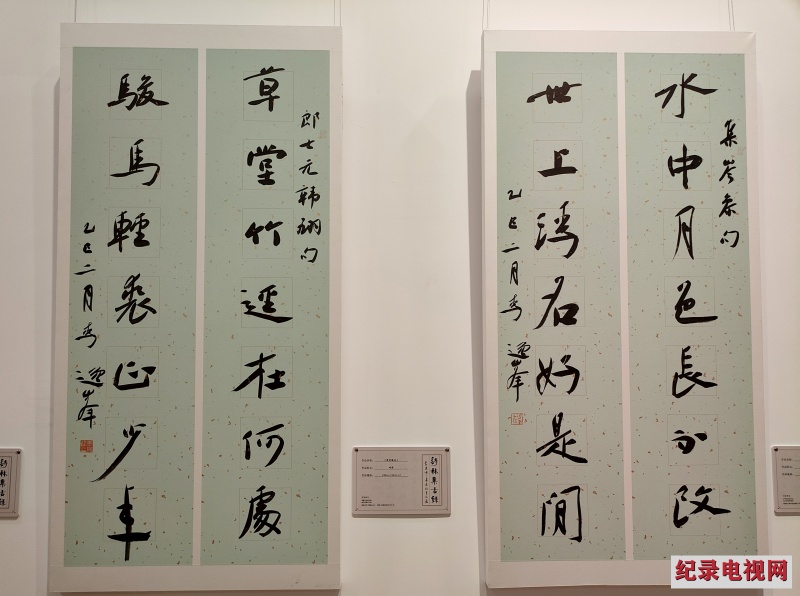 郎士元韓翃句
草堂竹逕在何處
駿馬輕裘正少年
乙巳二月春 逸峯
集岑參句
水中月色長不改
世上浮名好是閒
乙巳二月春 逸峯
纪录电视网